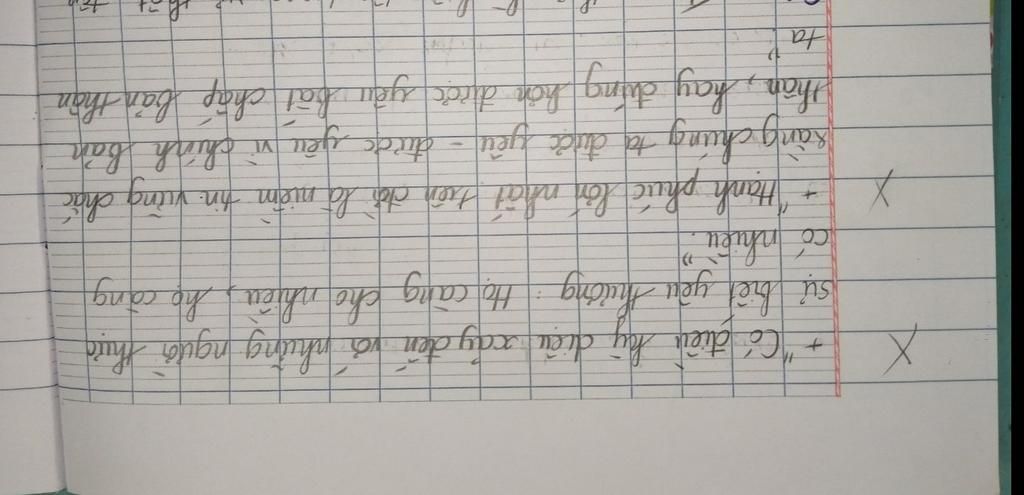 X + "Có điều kỳ diệu xảy đến với những người thực
sự biết yêu thương: Họ càng cho nhiều, họ càng
có nhiều."
X + "Hạnh phúc lớn nhất trên đời là niềm tin vững chắc
rằng chúng ta được yêu - được yêu vì chính bản
thân, hay đúng hơn được yêu bất chấp bản thân
ta."